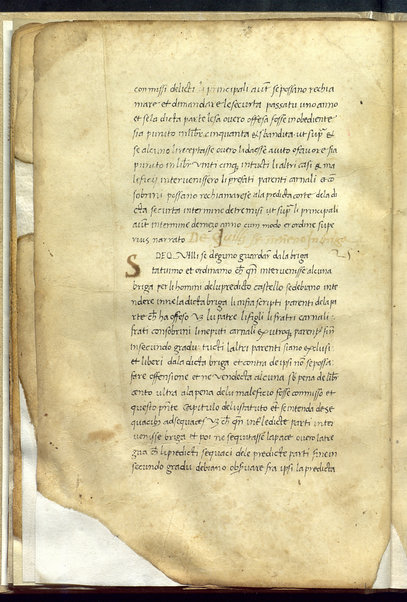 commissi delicti li principali aūt̄ se possano rechia
mare et dimandare le securta passatu uno anno
et se la dicta parte lesa overo offesa fosse inobediente
sia punito in libr̄. cinquanta et sbanditu ut sup̄ et
se alcuno li receptasse overo li dasse aiuto o favore sia
punito in libr̄ vinti cinq̄, in tucti li altri casi et ma
leficii intervenissero li prefati parenti carnali et co
sobrini possano rechiamarese a la predicta corte de la di
cta securta in termine de tre misi ut sup̄ li principali
aūt̄ in termine de mezo anno cum modo er ordine supe
rius narrato
De quilli se deguno guardar̄ da la briga
Statuimo et ordinamo ch̄ qn̄ intervenisse alcuna
briga per li homini de lu predicto castello se debiano inte
ndere in ne la dicta briga li infrascripti parenti de la pa
rte ch̄ ha offeso lu patre li figli li fratri carnali
frati consobrini li neputi carnali ex utroque parent̄ fin̄
in secundo gradu tucti l altri parenti siano exclusi
et liberi da la dicta briga et contra de ipsi nō se possa
fare offensione et ne vendecta alcuna s. pena de libr̄
cento ultra a la pena de lu maleficio fosse commisso et
questo pn̄te Capitulo de lu statuto et se intenda de se
quacib̄ ad sequaces ch̄ qn̄ intr̄ le dicte parti inter
venisse briga et poi ne sequitasse la pace overo la tre
gua ch̄ li predicti sequaci de le predicte parti fine in
secundo gradu debiano observare fra ipsi la predicta